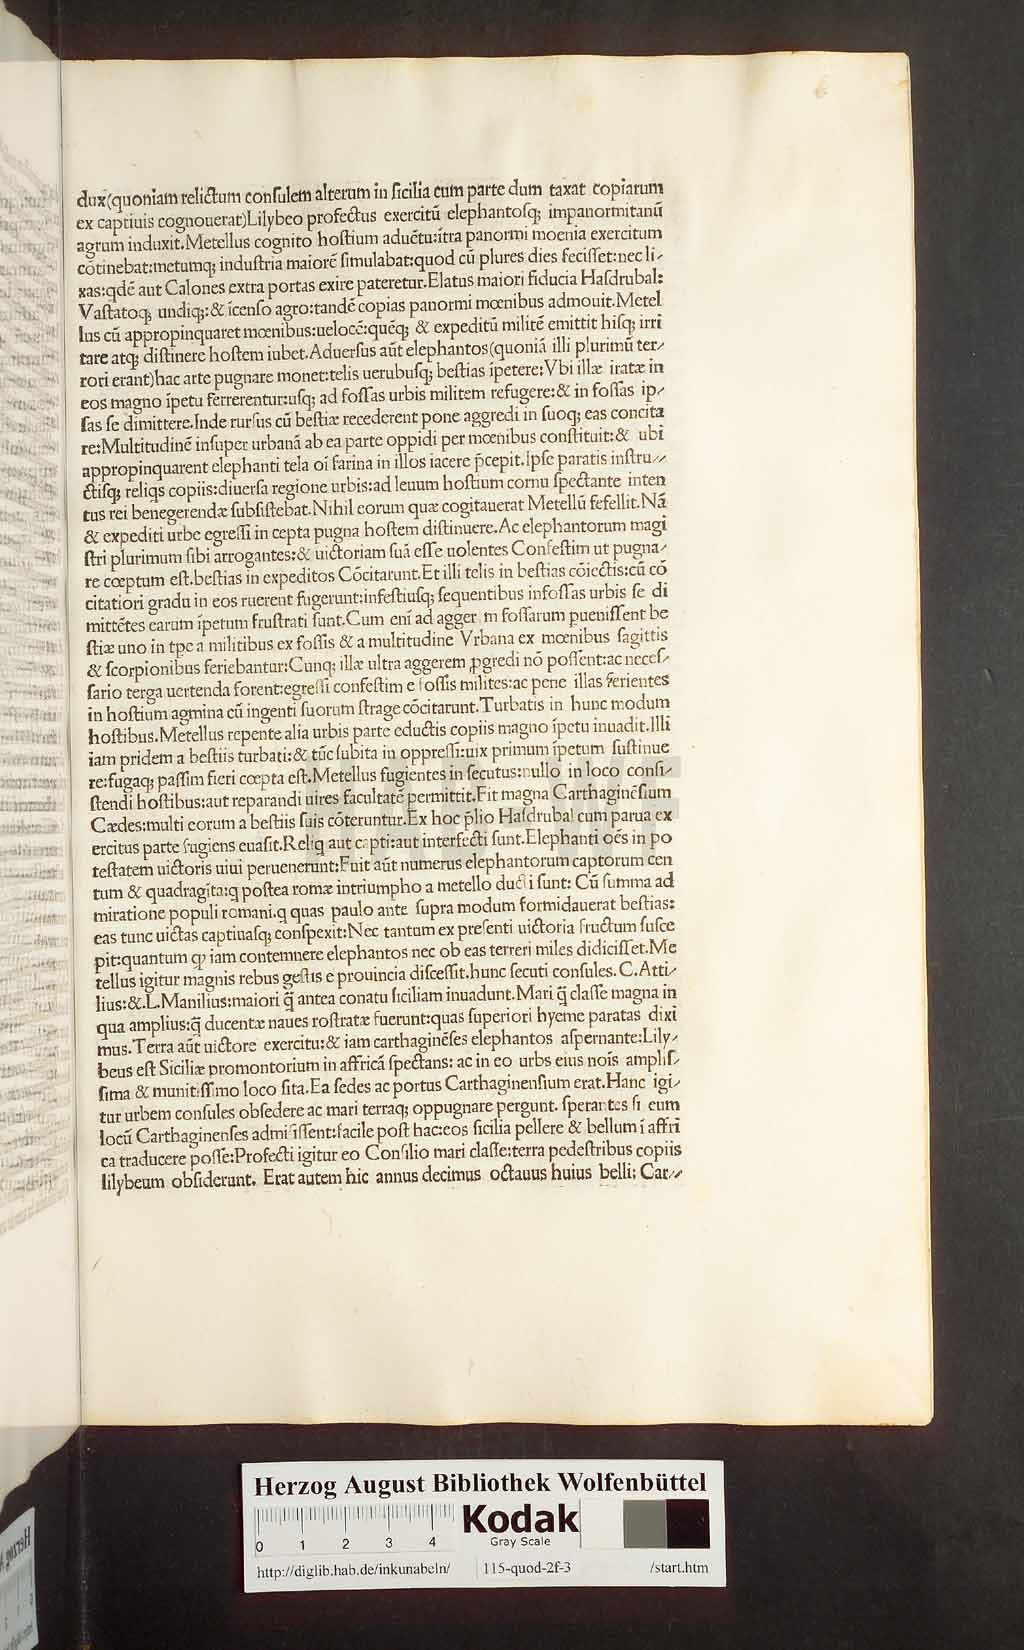 dux(quoniam relictum conſulem alterum in ſicilia cum parte dum taxat copiarum
ex captiuis cognouerat)Lilybeo profectus exercitũ elephantoſq; impanormitanũ
agrum induxit.Metellus cognito hoſtium aduẽtu:ĩtra panormi moenia exercitum
cõtinebat:metumq; induſtria maiorẽ ſimulabat:quod cũ plures dies feciſſet:nec li⸗
xas:qdẽ aut Calones extra portas exire pateretur.Elatus maiori fiducia Haſdrubal:
Vaſtatoq; undiq;:& ĩcenſo agro:tandẽ copias panormi mœnibus admouit.Metel
lus cũ appropinquaret mœnibus:uelocẽ:quẽq; & expeditũ militẽ emittit hiſq; irri
tare atq; diſtinere hoſtem iubet.Aduerſus aũt elephantos(quoniã illi plurimũ ter⸗
rori erant)hac arte pugnare monet:telis uerubuſq; beſtias ĩpetere:Vbi illæ iratæ in
eos magno ĩpetu ferrerentur:uſq; ad foſſas urbis militem refugere:& in foſſas ip⸗
ſas ſe dimittere.Inde rurſus cũ beſtiæ recederent pone aggredi in ſuoq; eas concita
re:Multitudinẽ inſuper urbanã ab ea parte oppidi per mœnibus conſtituit:& ubi
appropinquarent elephanti tela oĩ farina in illos iacere p̃cepit.Ipſe paratis inſtru⸗
ctiſq; reliqs copiis:diuerſa regione urbis:ad leuum hoſtium cornu ſpectante inten
tus rei benegerendæ ſubſiſtebat.Nihil eorum quæ cogitauerat Metellũ fefellit.Nã
& expediti urbe egreſſi in cepta pugna hoſtem diſtinuere.Ac elephantorum magi
ſtri plurimum ſibi arrogantes:& uictoriam ſuã eſſe uolentes Confeſtim ut pugna⸗
re cœptum eſt.beſtias in expeditos Cõcitarunt.Et illi telis in beſtias cõiectis:cũ cõ
citatiori gradu in eos ruerent fugerunt:infeſtiuſq; ſequentibus infoſſas urbis ſe di
mittẽtes earum ĩpetum fruſtrati ſunt.Cum enĩ ad agger m foſſarum pueniſſent be
ſtiæ uno in tpe a militibus ex foſſis & a multitudine Vrbana ex mœnibus ſagittis
& ſcorpionibus feriebantur:Cunq; illæ ultra aggerem ꝓgredi nõ poſſent:ac neceſ⸗
ſario terga uertenda forent:egreſſi confeſtim e foſſis milites:ac pene illas ferientes
in hoſtium agmina cũ ingenti ſuorum ſtrage cõcitarunt.Turbatis in hunc modum
hoſtibus.Metellus repente alia urbis parte eductis copiis magno ĩpetu inuadit.Illi
iam pridem a beſtiis turbati:& tũc ſubita in oppreſſi:uix primum ĩpetum ſuſtinue
re:fugaq; paſſim fieri cœpta eſt.Metellus fugientes in ſecutus:nullo in loco conſi⸗
ſtendi hoſtibus:aut reparandi uires facultatẽ permittit.Fit magna Carthaginẽſium
Cædes:multi eorum a beſtiis ſuis cõteruntur.Ex hoc p̃lio Haſdrubal cum parua ex
ercitus parte fugiens euaſit.Reliq aut capti:aut interfecti ſunt.Elephanti oẽs in po
teſtatem uictoris uiui peruenerunt:Fuit aũt numerus elephantorum captorum cen
tum & quadragĩta:q poſtea romæ intriumpho a metello ducti ſunt: Cũ ſumma ad
miratione populi romani.q quas paulo ante ſupra modum formidauerat beſtias:
eas tunc uictas captiuaſq; conſpexit:Nec tantum ex preſenti uictoria fructum ſuſce
pit:quantum ꝙ iam contemnere elephantos nec ob eas terreri miles didiciſſet.Me
tellus igitur magnis rebus geſtis e prouincia diſceſſit.hunc ſecuti conſules.C.Atti⸗
lius:&.L.Manilius:maiori q̃ antea conatu ſiciliam inuadunt.Mari q̃ claſſe magna in
qua amplius:q̃ ducentæ naues roſtratæ fuerunt:quas ſuperiori hyeme paratas dixi
mus.Terra aũt uictore exercitu:& iam carthaginẽſes elephantos aſpernante:Lily⸗
beus eſt Siciliæ promontorium in affricã ſpectans: ac in eo urbs eius noĩs ampliſ⸗
ſima & munitiſſimo loco ſita.Ea ſedes ac portus Carthaginenſium erat.Hanc igi⸗
tur urbem conſules obſedere ac mari terraq; oppugnare pergunt. ſperantes ſi eum
locũ Carthaginenſes admiſiſſent:facile poſt hac:eos ſicilia pellere & bellum ĩ affri
ca traducere poſſe:Profecti igitur eo Conſilio mari claſſe:terra pedeſtribus copiis
lilybeum obſiderunt. Erat autem hic annus decimus octauus huius belli: Car⸗
Herzog August Bibliothek Wolfenbüttel
0 1 2 3 4
Kodak
Gray Scale
http://diglib.hab.de/inkunabeln/ 115-quod-2f-3 /start.htm